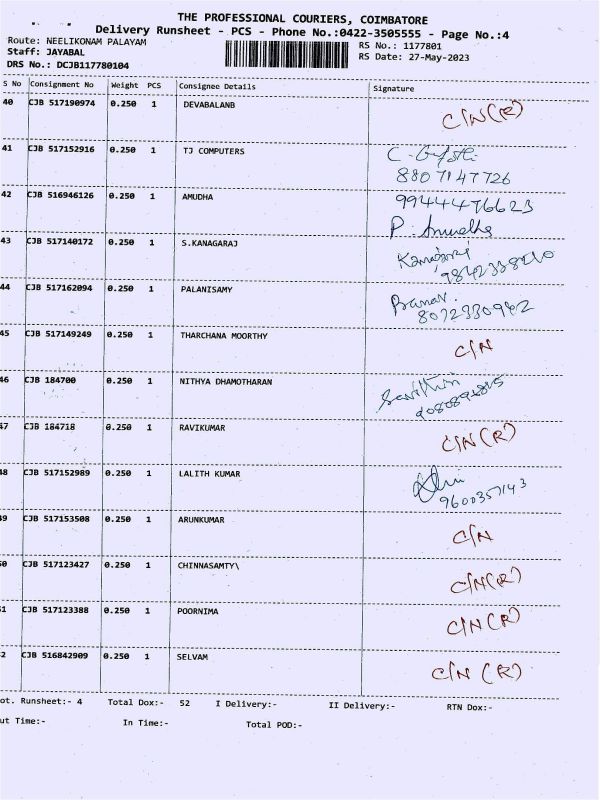 THE PROFESSIONAL COURIERS, COIMBATORE
Delivery Runsheet - PCS - Phone No.:0422-3505555 - Page No.:4
Route: NEELIKONAM PALAYAM
RS No.: 1177801
Staff: JAYABAL
RS Date: 27-May-2023
DRS No.: DCJB117780104
S No Consignment No Weight PCS Consignee Details Signature
40 CJB 517190974 0.250 1 DEVABALANB C/N(R)
41 CJB 517152916 0.250 1 TJ COMPUTERS C.
8807147726
42 CJB 516946126 0.250 1 AMUDHA 99444476623
P. Amudha
43 CJB 517140172 0.250 1 S.KANAGARAJ Kanagaraj
44 CJB 517162094 0.250 1 PALANISAMY
8072330942
45 CJB 517149249 0.250 1 THARCHANA MOORTHY C/N
46 CJB 184700 0.250 1 NITHYA DHAMOTHARAN
47 CJB 184718 0.250 1 RAVIKUMAR C/N(R)
48 CJB 517152989 0.250 1 LALITH KUMAR
9600357143
49 CJB 517153508 0.250 1 ARUNKUMAR C/N
0 CJB 517123427 0.250 1 CHINNASAMTY\ C/N(R)
1 CJB 517123388 0.250 1 POORNIMA C/N(R)
2 CJB 516842909 0.250 1 SELVAM C/N (R)
ot. Runsheet:- 4 Total Dox:- 52 I Delivery:- II Delivery:- RTN Dox:-
ut Time:- In Time:- Total POD:-